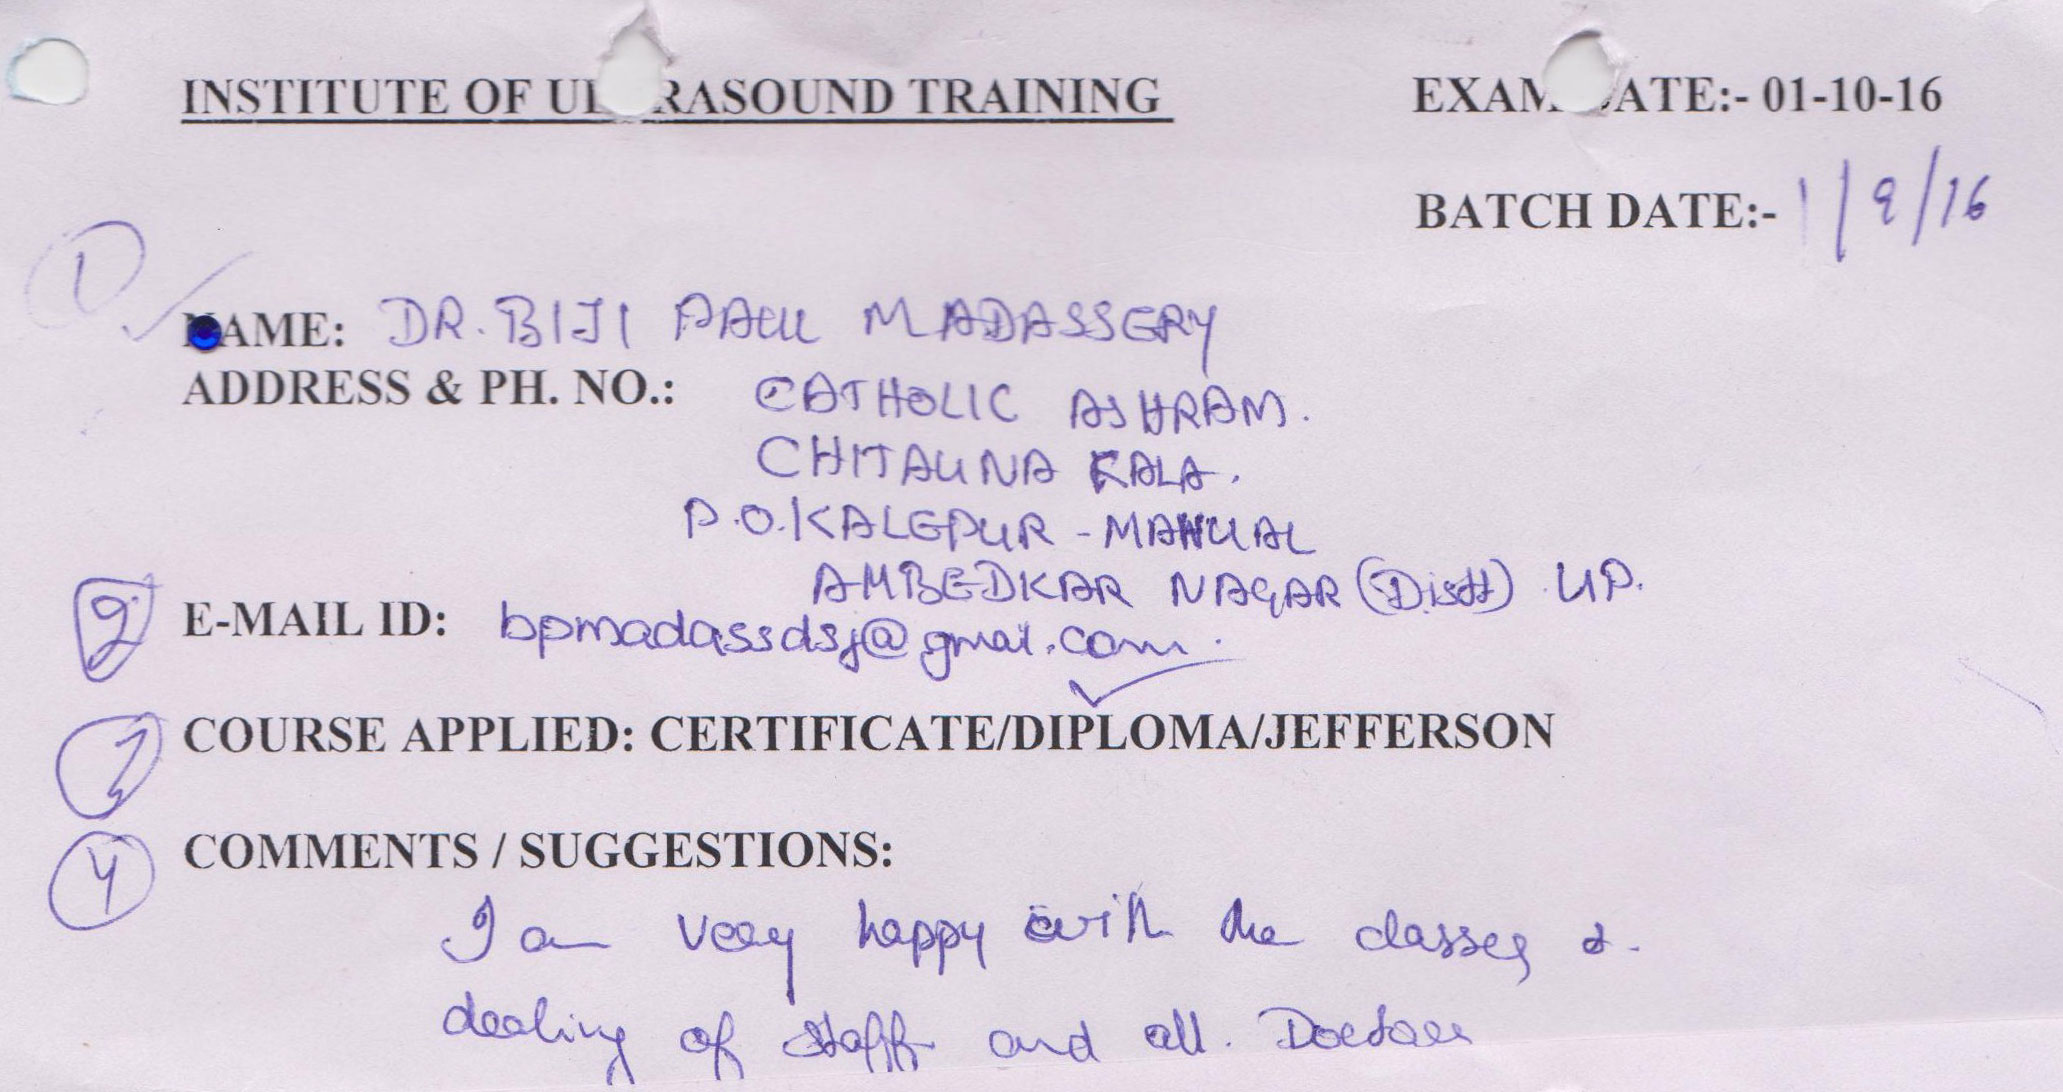 INSTITUTE OF ULTRASOUND TRAINING
EXAM DATE:- 01-10-16
BATCH DATE:- 1/9/16
1
NAME: DR. BIJI PAUL MADASSERY
ADDRESS & PH. NO.: CATHOLIC ASHRAM.
CHITAUNA KALA.
P.O. KALEPUR - MAHUAL
AMBEDKAR NAGAR (Distt) UP.
2 E-MAIL ID: bpmadassdsj@gmail.com.
3 COURSE APPLIED: CERTIFICATE/DIPLOMA/JEFFERSON
4 COMMENTS / SUGGESTIONS:
I am very happy with the classes &
dealing of staff and all. Doctors